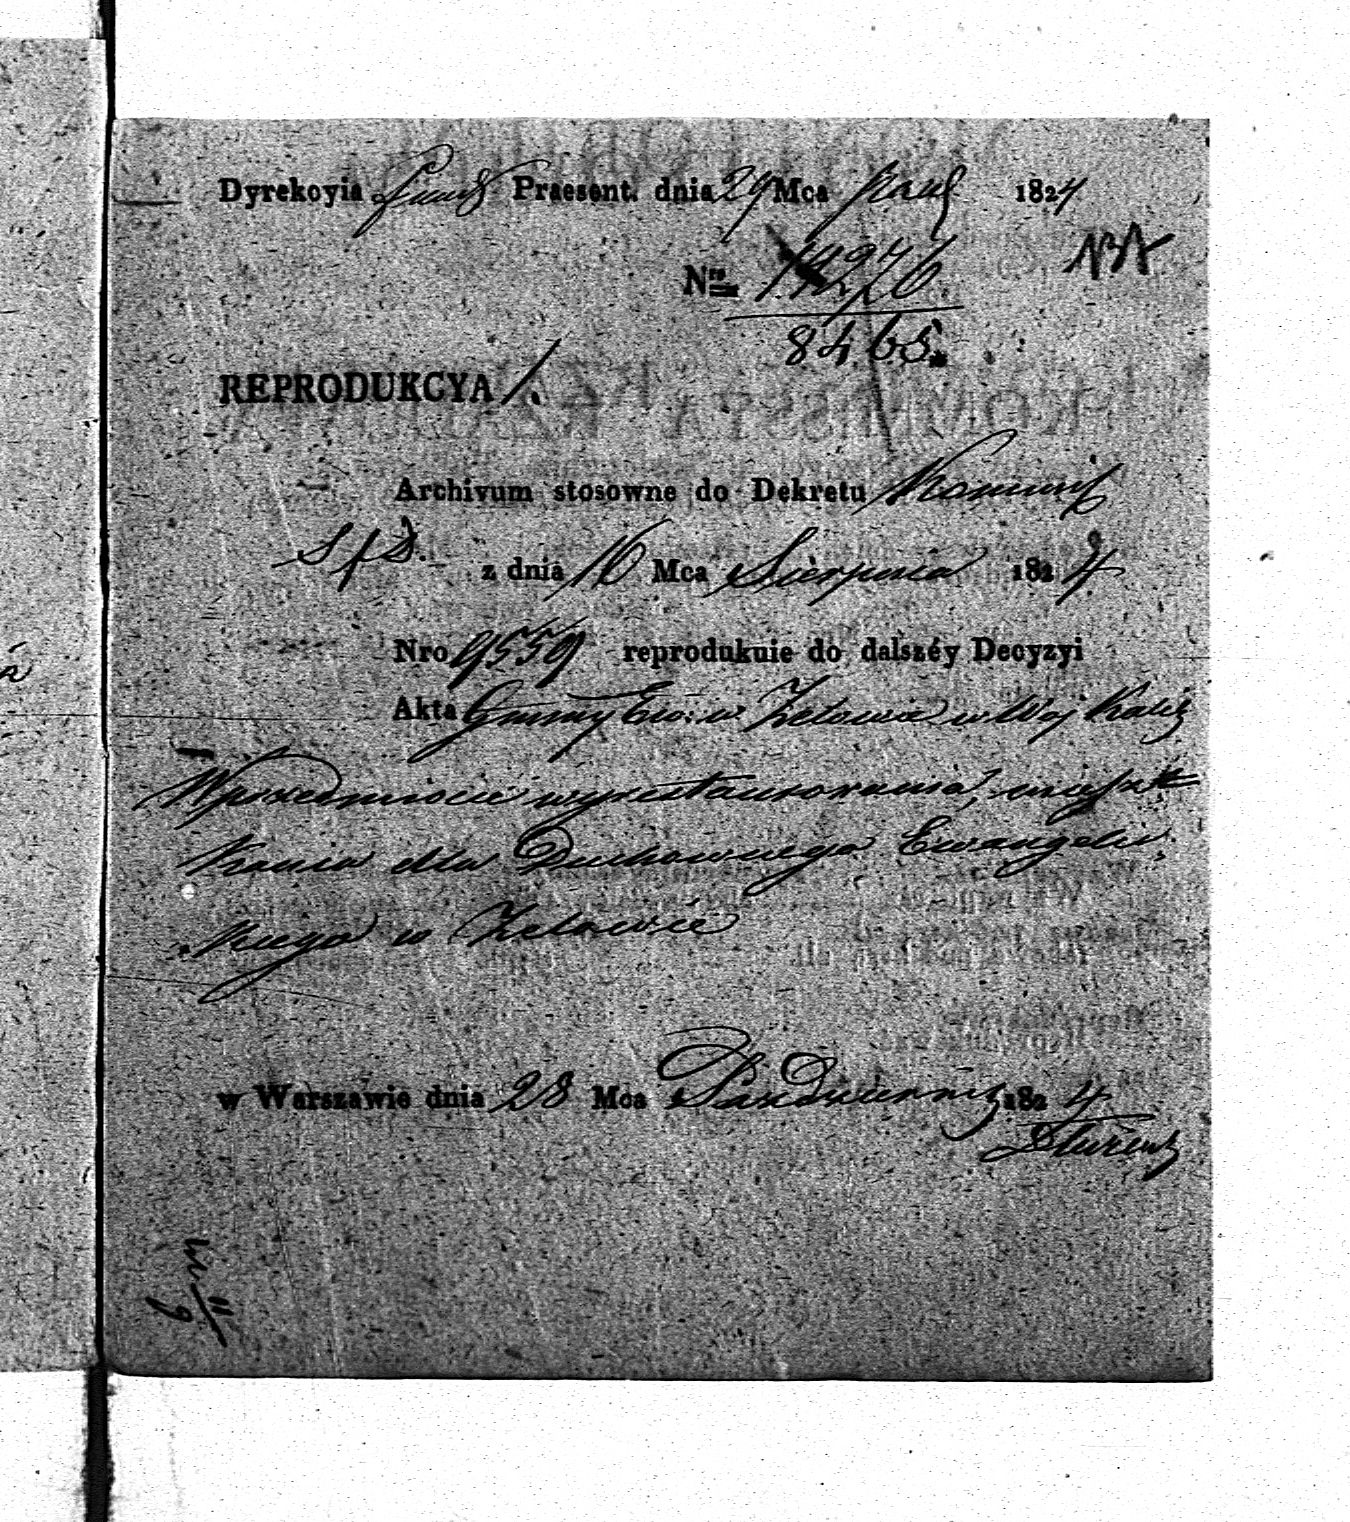 Dyrekcyia Fund Praesent. dnia 29 Mca Paźd 1824
Nro 14276
8465.
REPRODUKCYA 1.
Archivum stosowne do Dekretu Kommis
S f D. z dnia 16 Mca Sierpnia 1824
Nro 9559 reprodukuie do dalszéy Decyzyi
Akta Gminy Ew: w Zelowie w Woj Kalis
W przedmiocie wyrestaurowania miesz
kania dla Duchownego Ewangelic
kiego w Zelowie
w Warszawie dnia 28 Mca Październik 1824